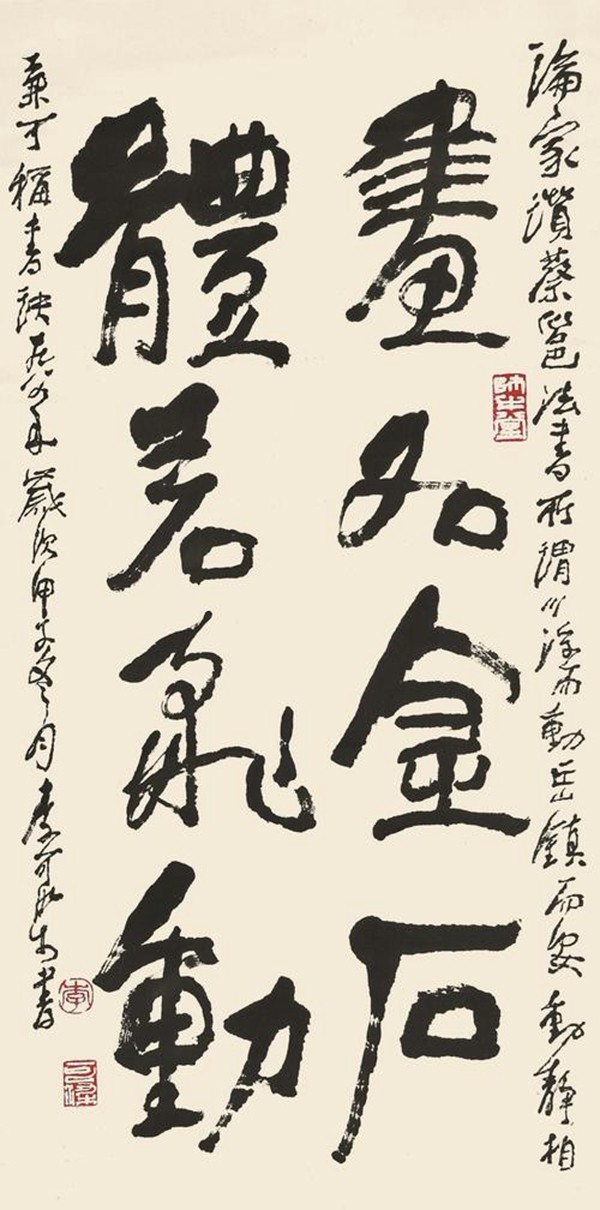 論家讚蔡邕法書所謂而動岳鎮而安動靜相
畫如金石
體若飛動
兼可稱書訣年歲次甲子冬月李可染書
師牛堂
李
可染